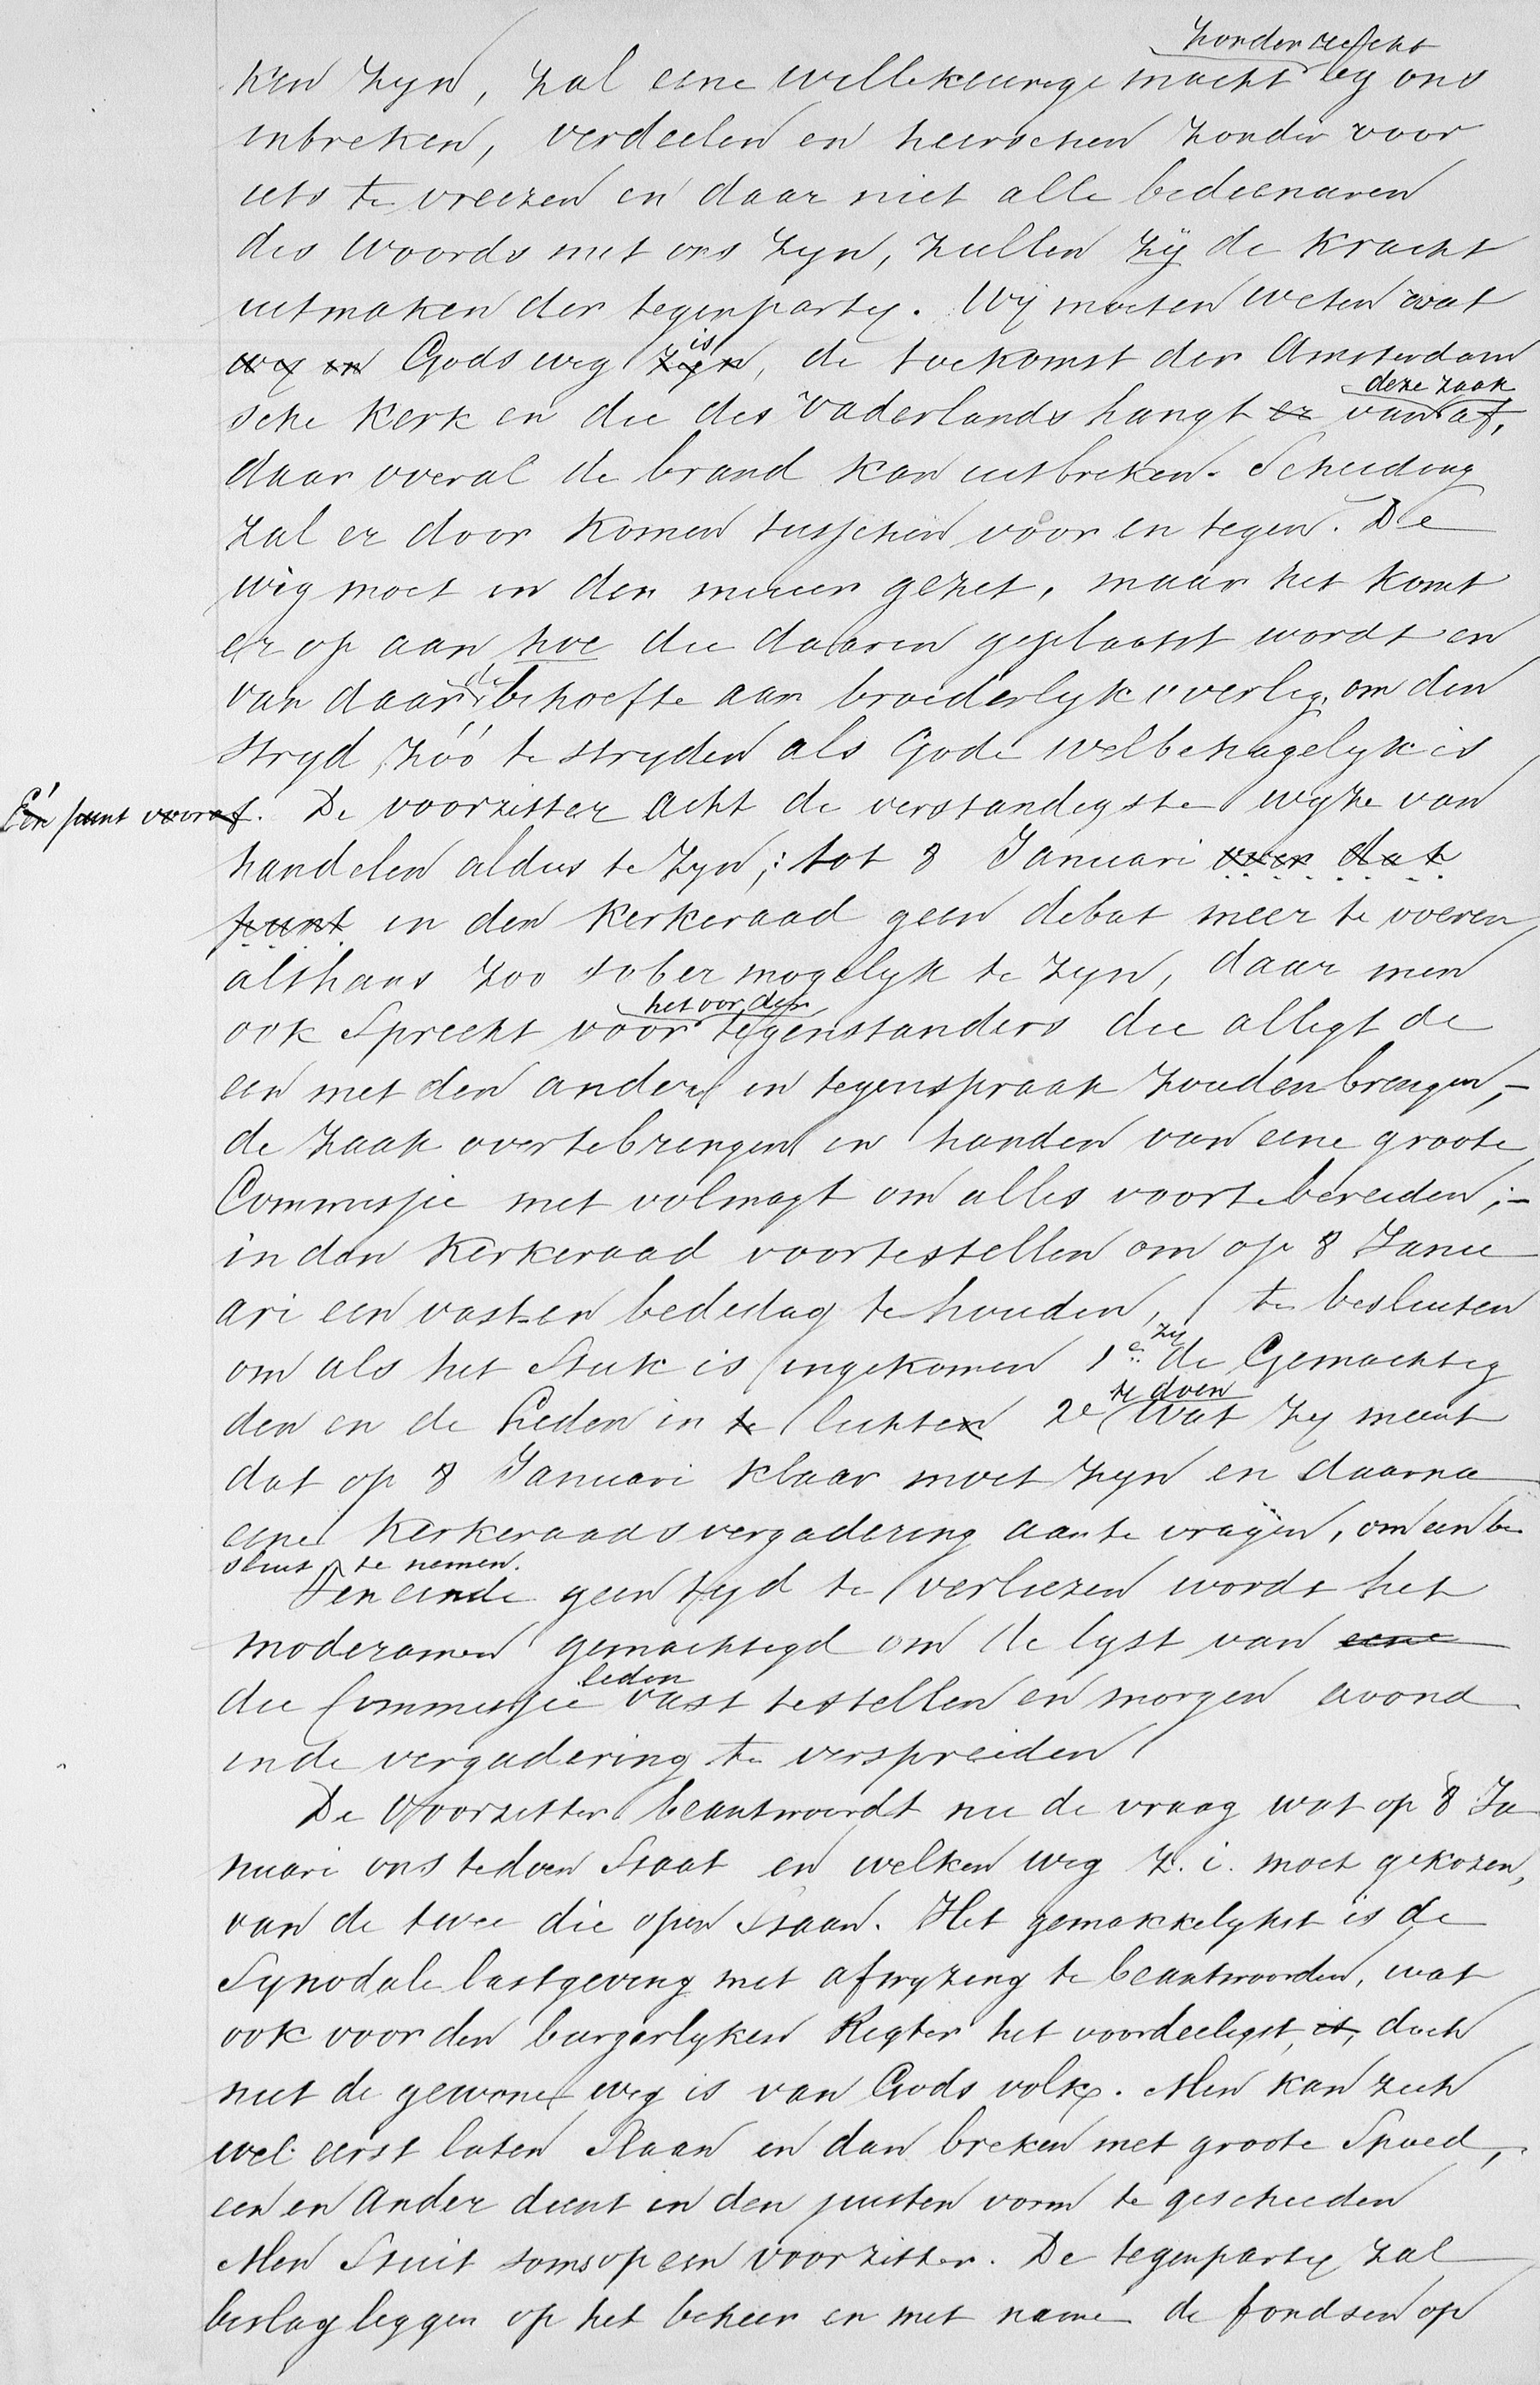 zonder recht
ken zyn, zal eene willekeurige macht by ons
inbreken, verdeelen en heerschen zonder voor
iets te vreezen en daar niet alle bedienaren
des Woords met ons zyn, zullen zy de kracht
uitmaken der tegenparty. Wy moeten weten wat
weg en Gods weg zyn is, de toekomst der Amsterdam
deze zaak
sche Kerk en die des Vaderlands hangt er van af,
daar overal de brand kan uitbreken. Scheiding
zal er door komen tusschen voor en tegen. De
wig moet in den muur gezet, maar het komt
er op aan hoe die daarin geplaatst wordt en
van daar de behoefte aan broederlyk overleg, om den
stryd zóó te stryden als Gode welbehagelyk is
Eén punt vooraf. De voorzitter acht de verstandigste wyze van
handelen aldus te zyn; tot 8 Januari over dat
punt in den Kerkeraad geen debat meer te voeren,
althans zoo sober mogelyk te zyn, daar men
het oor der
ook spreekt voor tegenstanders die alligt de
een met den ander in tegenspraak zouden brengen,-
de zaak overtebrengen in handen van eene groote
Commissie met volmagt om alles voortebereiden;-
in den Kerkeraad voortestellen om op 8 Janu
ari een vast-en bededag te houden, te besluiten
om als het Stuk is ingekomen 1e zy de Gemachtig
te doen
den en de Leden in te lichten 2e wat zy meent
dat op 8 Januari klaar moet zyn en daarna
eene Kerkeraadsvergadering aan te vragen, om een be
sluit te nemen.
Ten einde geen tyd te verliezen wordt het
moderamen gemachtigd om de lyst van eene
leden
die Commissie vast testellen en morgen avond
in de vergadering te verspreiden
De Voorzitter beantwoordt nu de vraag wat op 8 Ja
nuari ons te doen staat en welken weg z. i. moet gekozen,
van de twee die open staan. Het gemakkelykst is de
Synodale lastgeving met afwyzing te beantwoorden, wat
ook voor den burgerlyken Regter het voordeeligst, is, doch
niet de gewone weg is van Gods volk. Men kan zich
wel eerst laten slaan en dan breken met groote spoed,
een en ander dient in den juisten vorm te geschieden
Men stuit soms op een voorzitter. De tegenparty zal
beslag leggen op het beheer en met name de fondsen op